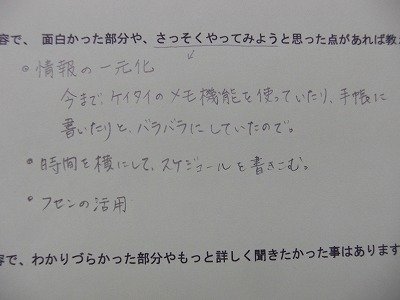 容で、面白かった部分や、さっそくやってみようと思った点があれば教え
• 情報の一元化
今まで、ケイタイのメモ機能を使っていたり、手帳に
書いたりと、バラバラにしていたので。
• 時間を横にして、スケジュールを書きこむ。
• フセンの活用
容で、わかりづらかった部分やもっと詳しく聞きたかった事はあります